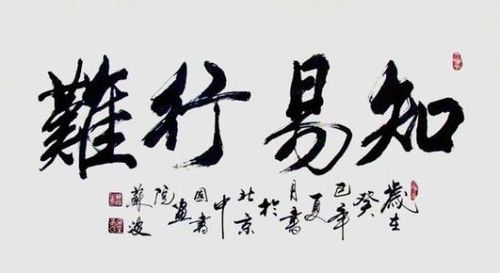 知易行難
歲在癸巳年夏月書於北京中国書画院蘇